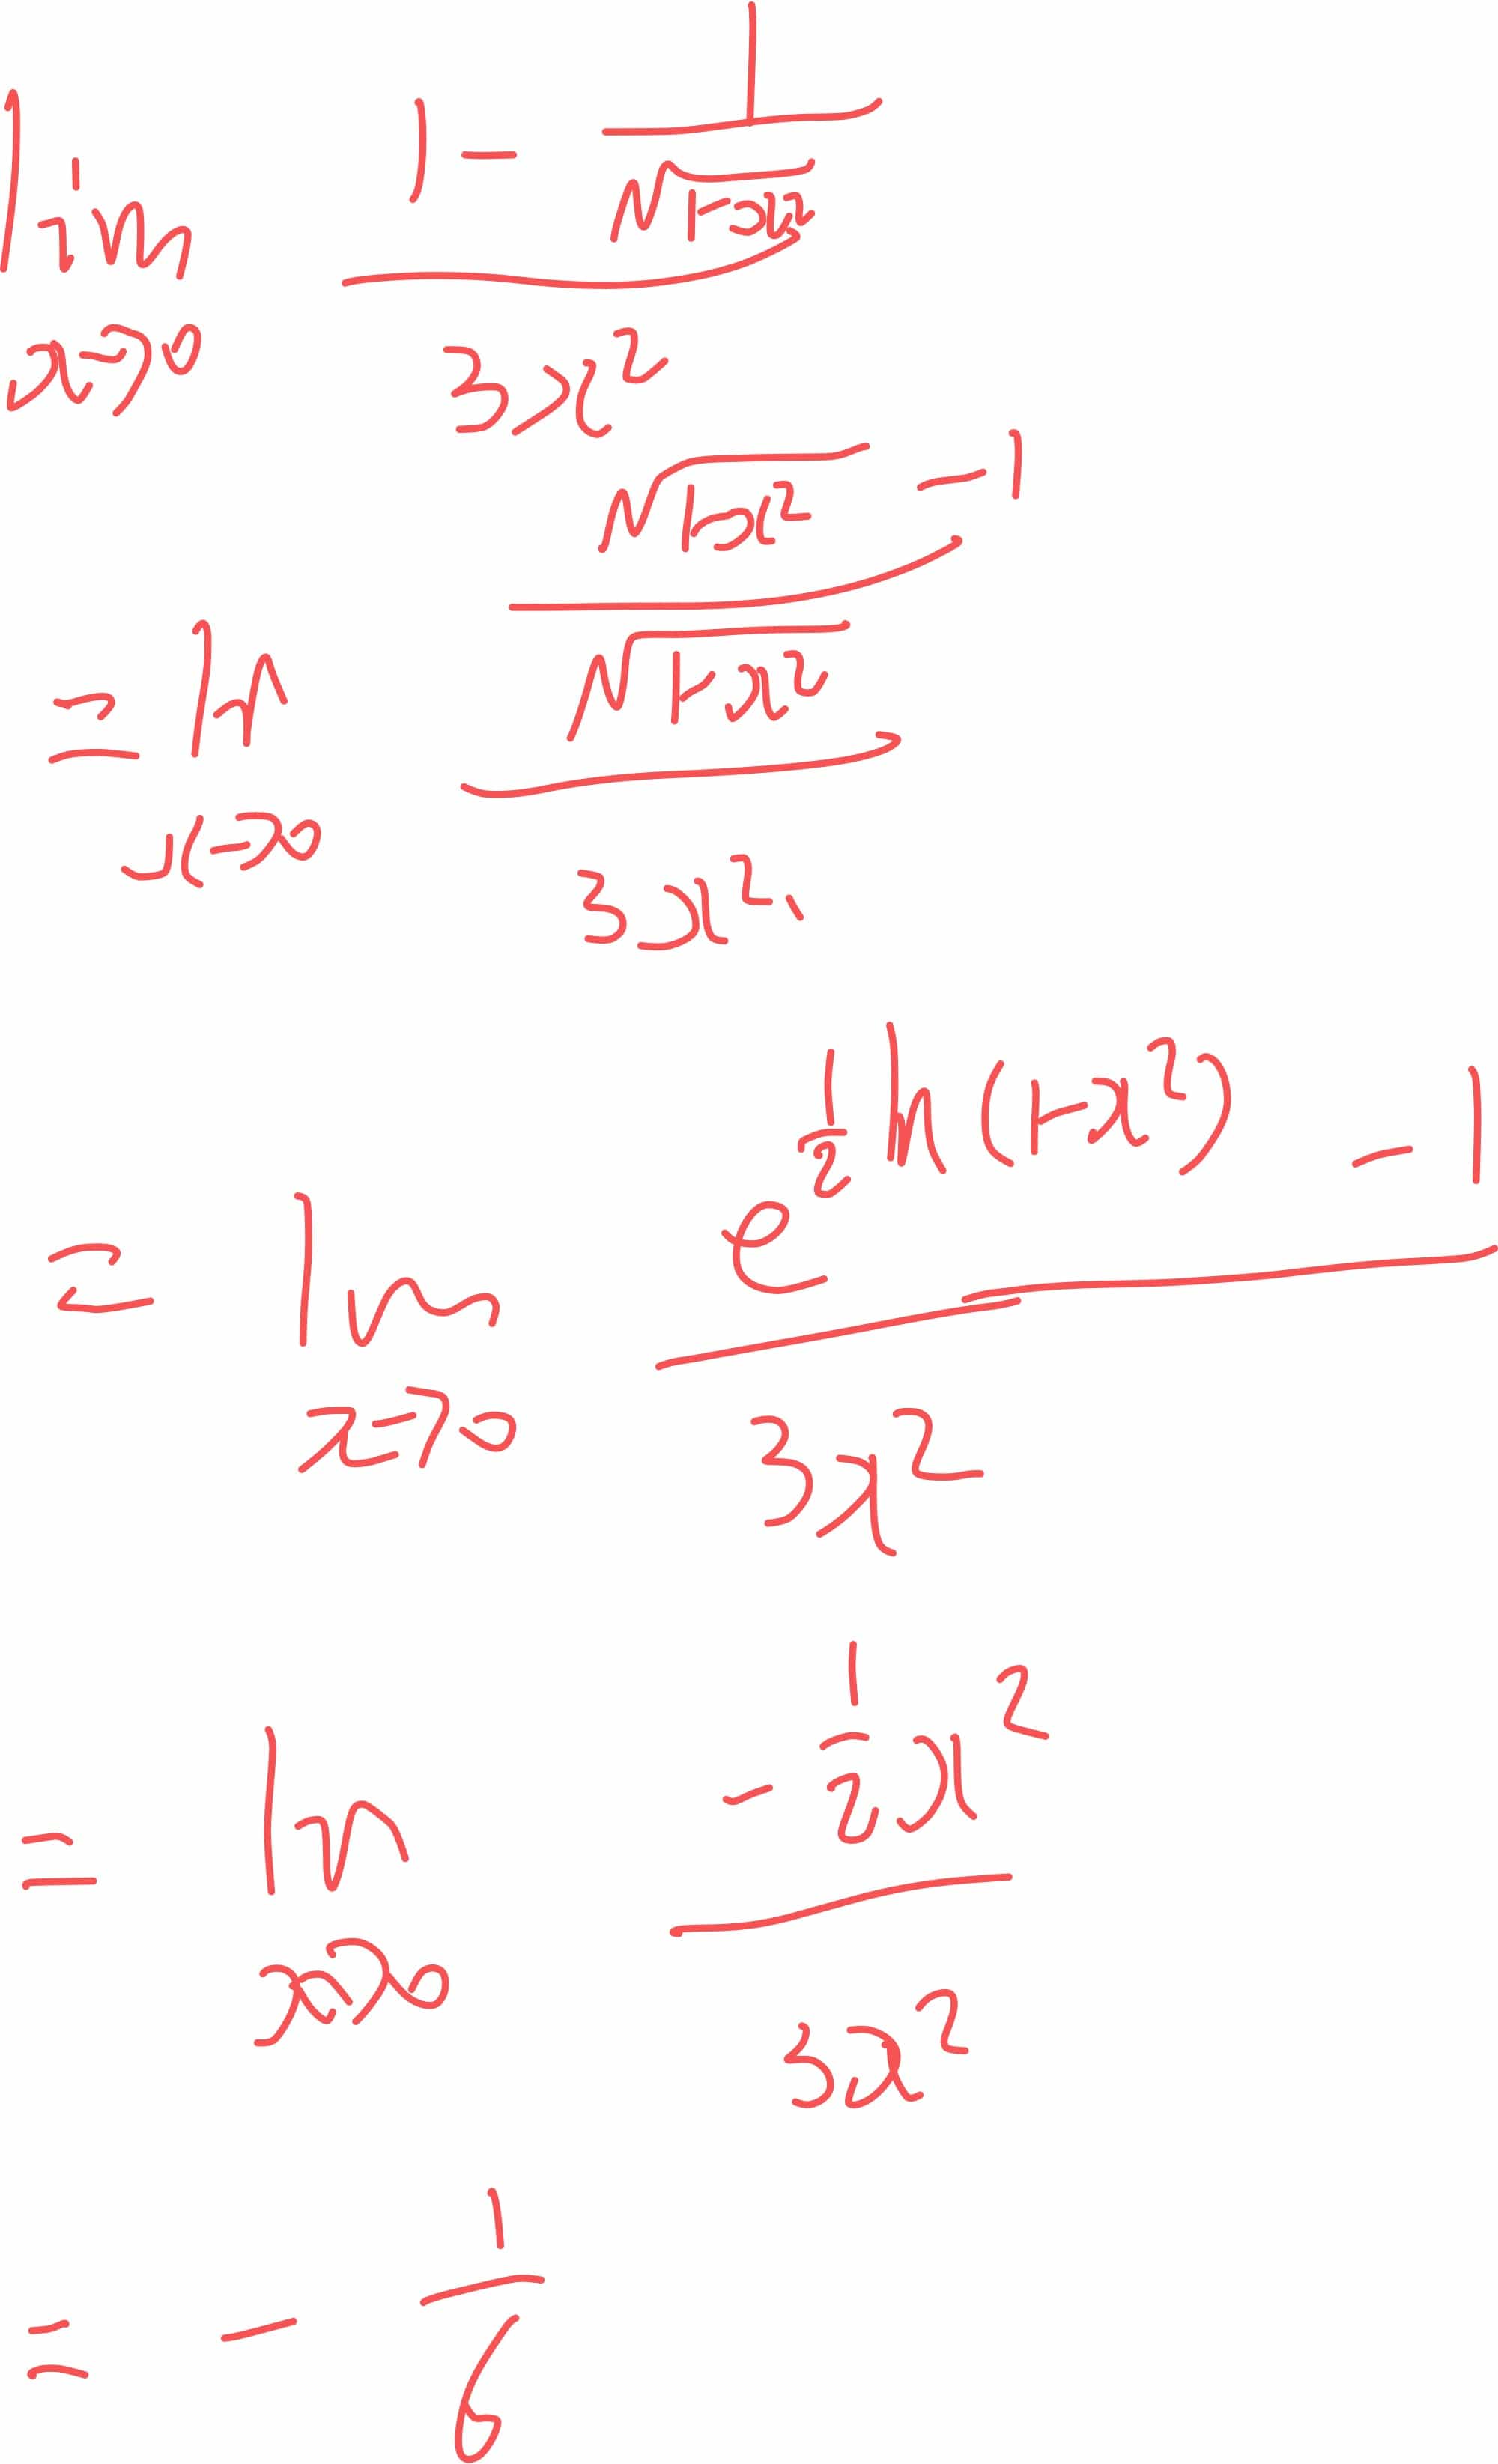 lim x→0 (1 - 1/√(1-x²)) / (3x²)
= lim x→0 ((√(1-x²) - 1) / √(1-x²)) / (3x²)
= lim x→0 (e^(½ ln(1-x²)) - 1) / (3x²)
= lim x→0 (-½x²) / (3x²)
= -1/6